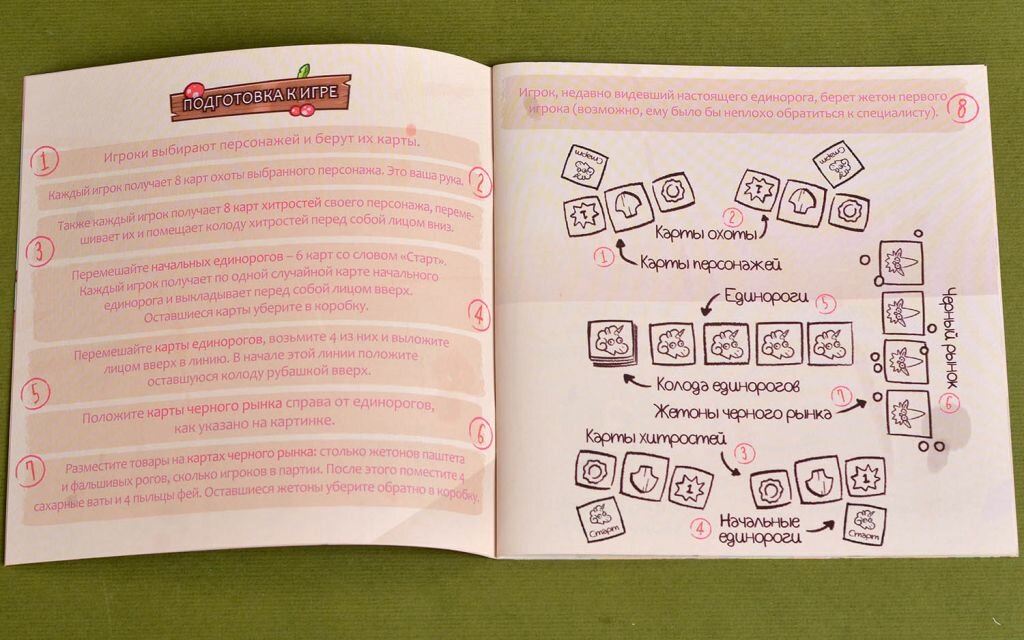 ПОДГОТОВКА К ИГРЕ
1
Игроки выбирают персонажей и берут их карты.
Каждый игрок получает 8 карт охоты выбранного персонажа. Это ваша рука.
2
Также каждый игрок получает 8 карт хитростей своего персонажа, переме-
шивает их и помещает колоду хитростей перед собой лицом вниз.
3
Перемешайте начальных единорогов – 6 карт со словом «Старт».
Каждый игрок получает по одной случайной карте начального
единорога и выкладывает перед собой лицом вверх.
Оставшиеся карты уберите в коробку.
4
Перемешайте карты единорогов, возьмите 4 из них и выложите
лицом вверх в линию. В начале этой линии положите
оставшуюся колоду рубашкой вверх.
5
Положите карты черного рынка справа от единорогов,
как указано на картинке.
6
7
Разместите товары на картах черного рынка: столько жетонов паштета
и фальшивых рогов, сколько игроков в партии. После этого поместите 4
сахарные ваты и 4 пыльцы фей. Оставшиеся жетоны уберите обратно в коробку.
Игрок, недавно видевший настоящего единорога, берет жетон первого
игрока (возможно, ему было бы неплохо обратиться к специалисту).
8
Старт
Старт
1
1
2
Карты охоты
1
Карты персонажей
Единороги
5
Черный рынок
6
Колода единорогов
7
Жетоны черного рынка
Карты хитростей
3
1
1
4
Начальные
единороги
Старт
Старт